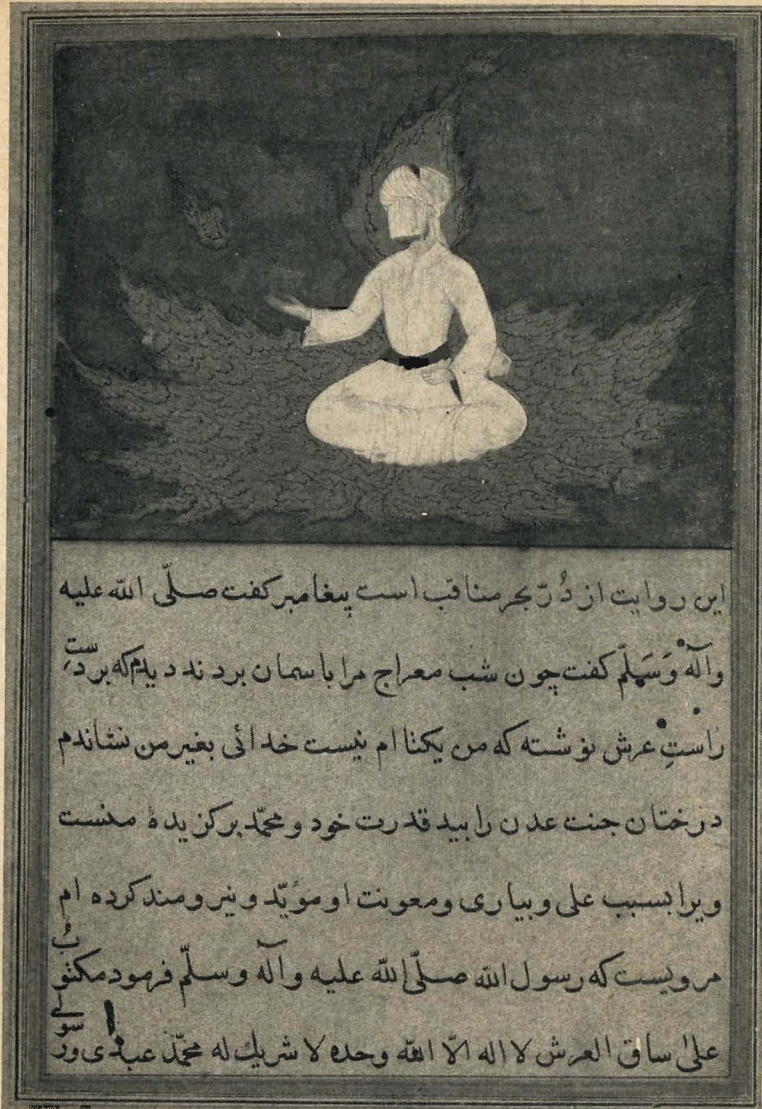 این روایت از دُرّ بحر مناقب است پیغامبر کفت صلّی الله علیه
وآله وَسَلّم کفت چون شب معراج مرا باسمان بردند دیدم که بر دستِ
راستِ عرش نوشته که من یکتا ام نیست خدائی بغیر من نشاندم
درختان جنت عدن را بید قدرت خود و محمّد برکزیدهٔ منست
ویرا بسبب علی و بیاری ومعونت او مؤیّد و نیرومند کرده ام
مرویست که رسول الله صلّی الله علیه وآله وسلّم فرمود مکتوبٌ
علیٰ ساق العرش لا اله الّا الله وحده لا شریك له محمّد عبدی ورسولی